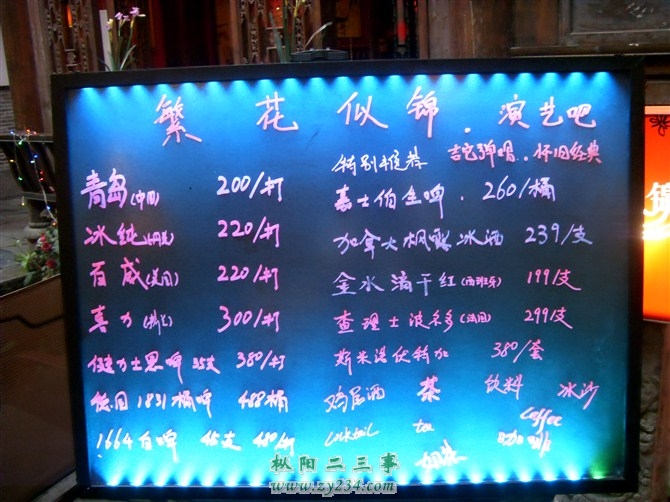 繁花似锦·演艺吧
吉它弹唱·怀旧经典
特别推荐
青岛(中国) 200/打
冰纯 220/打
百威(美国) 220/打
喜力(荷兰) 300/打
健力士黑啤 35支 380/打
德国1831桶啤 488桶
1664白啤 45支 480/打
嘉士伯生啤·260/桶
加拿大枫 冰酒 239/支
金水滴干红(西班牙) 199/支
查理士波尔多(法国) 299/支
斯米诺伏特加 380/套
鸡尾酒 茶 饮料 冰沙
Cocktail tea Coffee
锦
枞阳二三事
www.zy234.com